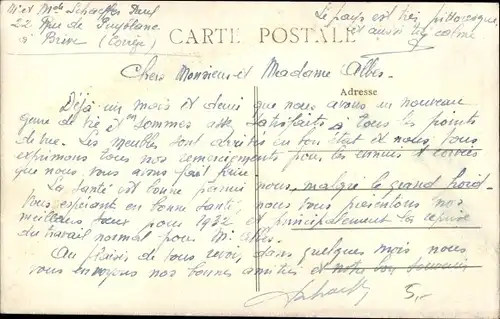 Mr et Mde Schaeffer Paul
22, Rue de Puyblanc
à Brive (Corrèze)
Le pays est très pittoresque
et aussi très calme
CARTE POSTALE
Chers Monsieur et Madame Albès.
Adresse
Déjà un mois et demi que nous avons un nouveau
genre de vie et en sommes assez satisfaits à tous les points
de vue. Les meubles sont arrivés en bon état et nous vous
exprimons tous nos remerciements pour les ennuis et corvées
que nous vous avons fait faire
La santé est bonne parmi nous, malgré le grand froid.
Vous espérant en bonne santé, nous vous présentons nos
meilleurs vœux pour 1932 et principalement la reprise
du travail normal pour Mr Albès.
Au plaisir de vous revoir, dans quelques mois nous
vous envoyons nos bonnes amitiés et notre bon souvenir
5,-